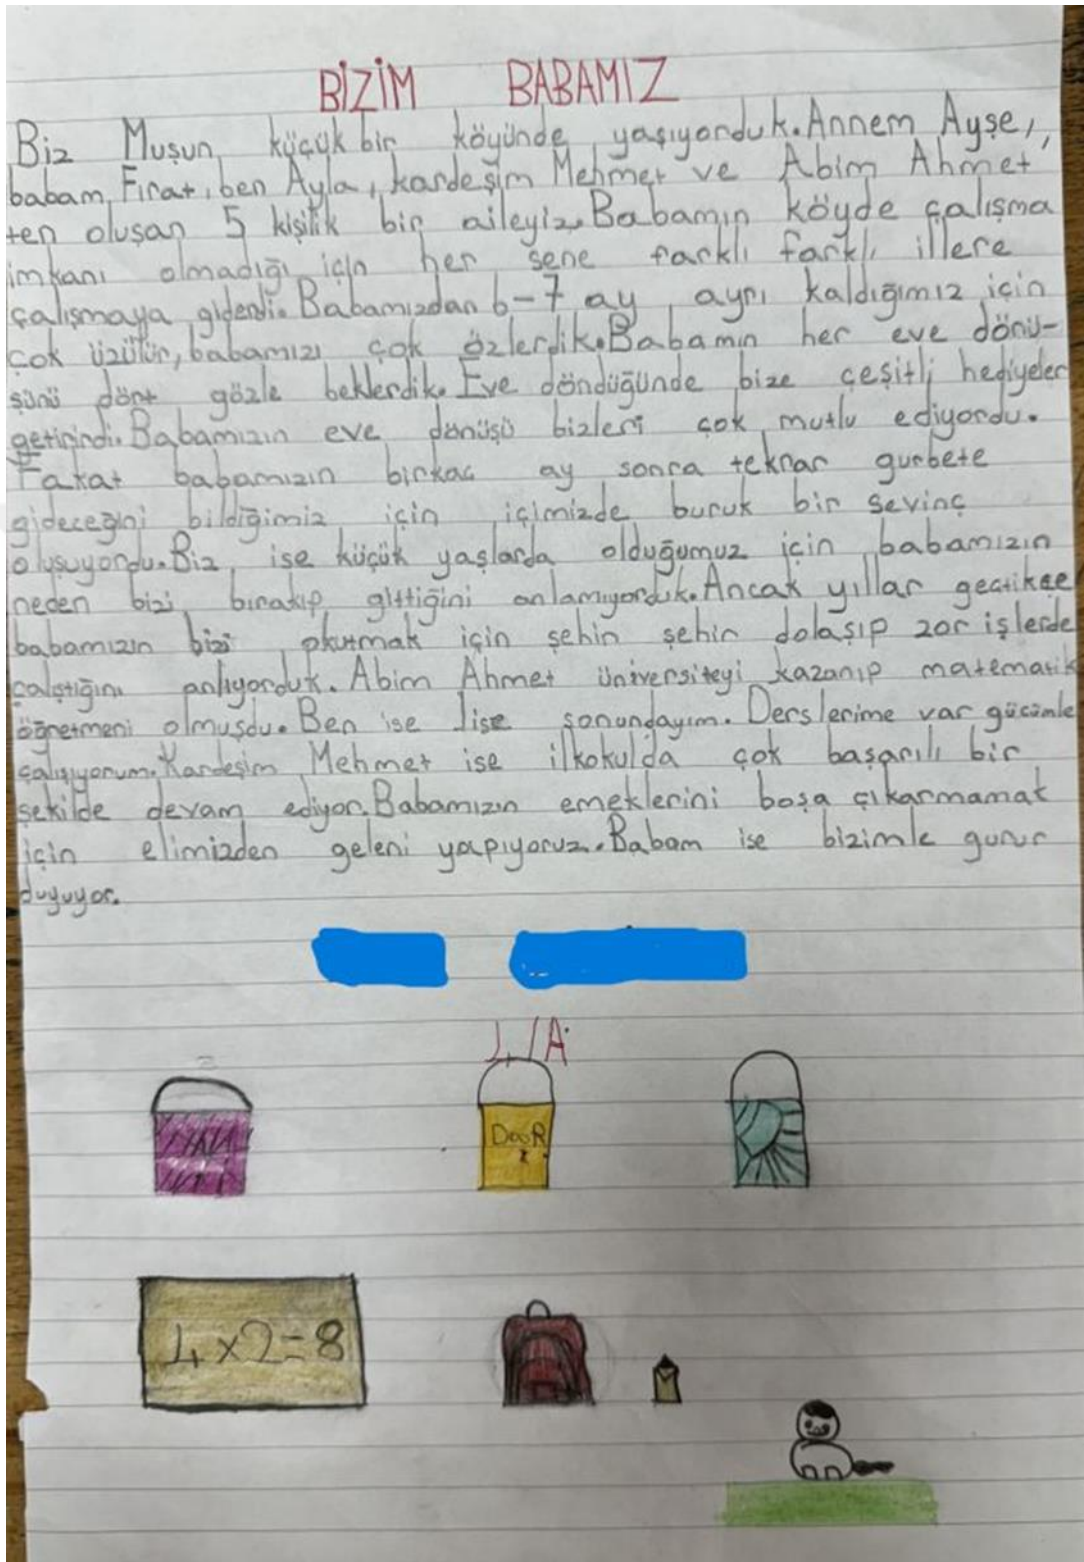 BİZİM BABAMIZ
Biz Muşun küçük bir köyünde yaşıyorduk. Annem Ayşe,
babam Fırat, ben Ayla, kardeşim Mehmet ve Abim Ahmet'
ten oluşan 5 kişilik bir aileyiz. Babamın köyde çalışma
imkanı olmadığı için her sene farklı farklı illere
çalışmaya giderdi. Babamızdan 6-7 ay ayrı kaldığımız için
çok üzülür, babamızı çok özlerdik. Babamın her eve dönü-
şünü dört gözle beklerdik. Eve döndüğünde bize çeşitli hediyeler
getirirdi. Babamızın eve dönüşü bizleri çok mutlu ediyordu.
Fakat babamızın birkaç ay sonra teknar gurbete
gideceğini bildiğimiz için içimizde buruk bir sevinç
oluşuyordu. Biz ise küçük yaşlarda olduğumuz için babamızın
neden bizi bırakıp gittiğini anlamıyorduk. Ancak yıllar geçtikçe
babamızın bizi okutmak için şehir şehir dolaşıp zor işlerde
çalıştığını anlıyorduk. Abim Ahmet üniversiteyi kazanıp matematik
öğretmeni olmuşdu. Ben ise lise sonundayım. Derslerime var gücümle
çalışıyorum. Kardeşim Mehmet ise ilkokulda çok başarılı bir
şekilde devam ediyor. Babamızın emeklerini boşa çıkarmamak
için elimizden geleni yapıyoruz. Babam ise bizimle gurur
duyuyor.
4/A
DooR
4x2=8